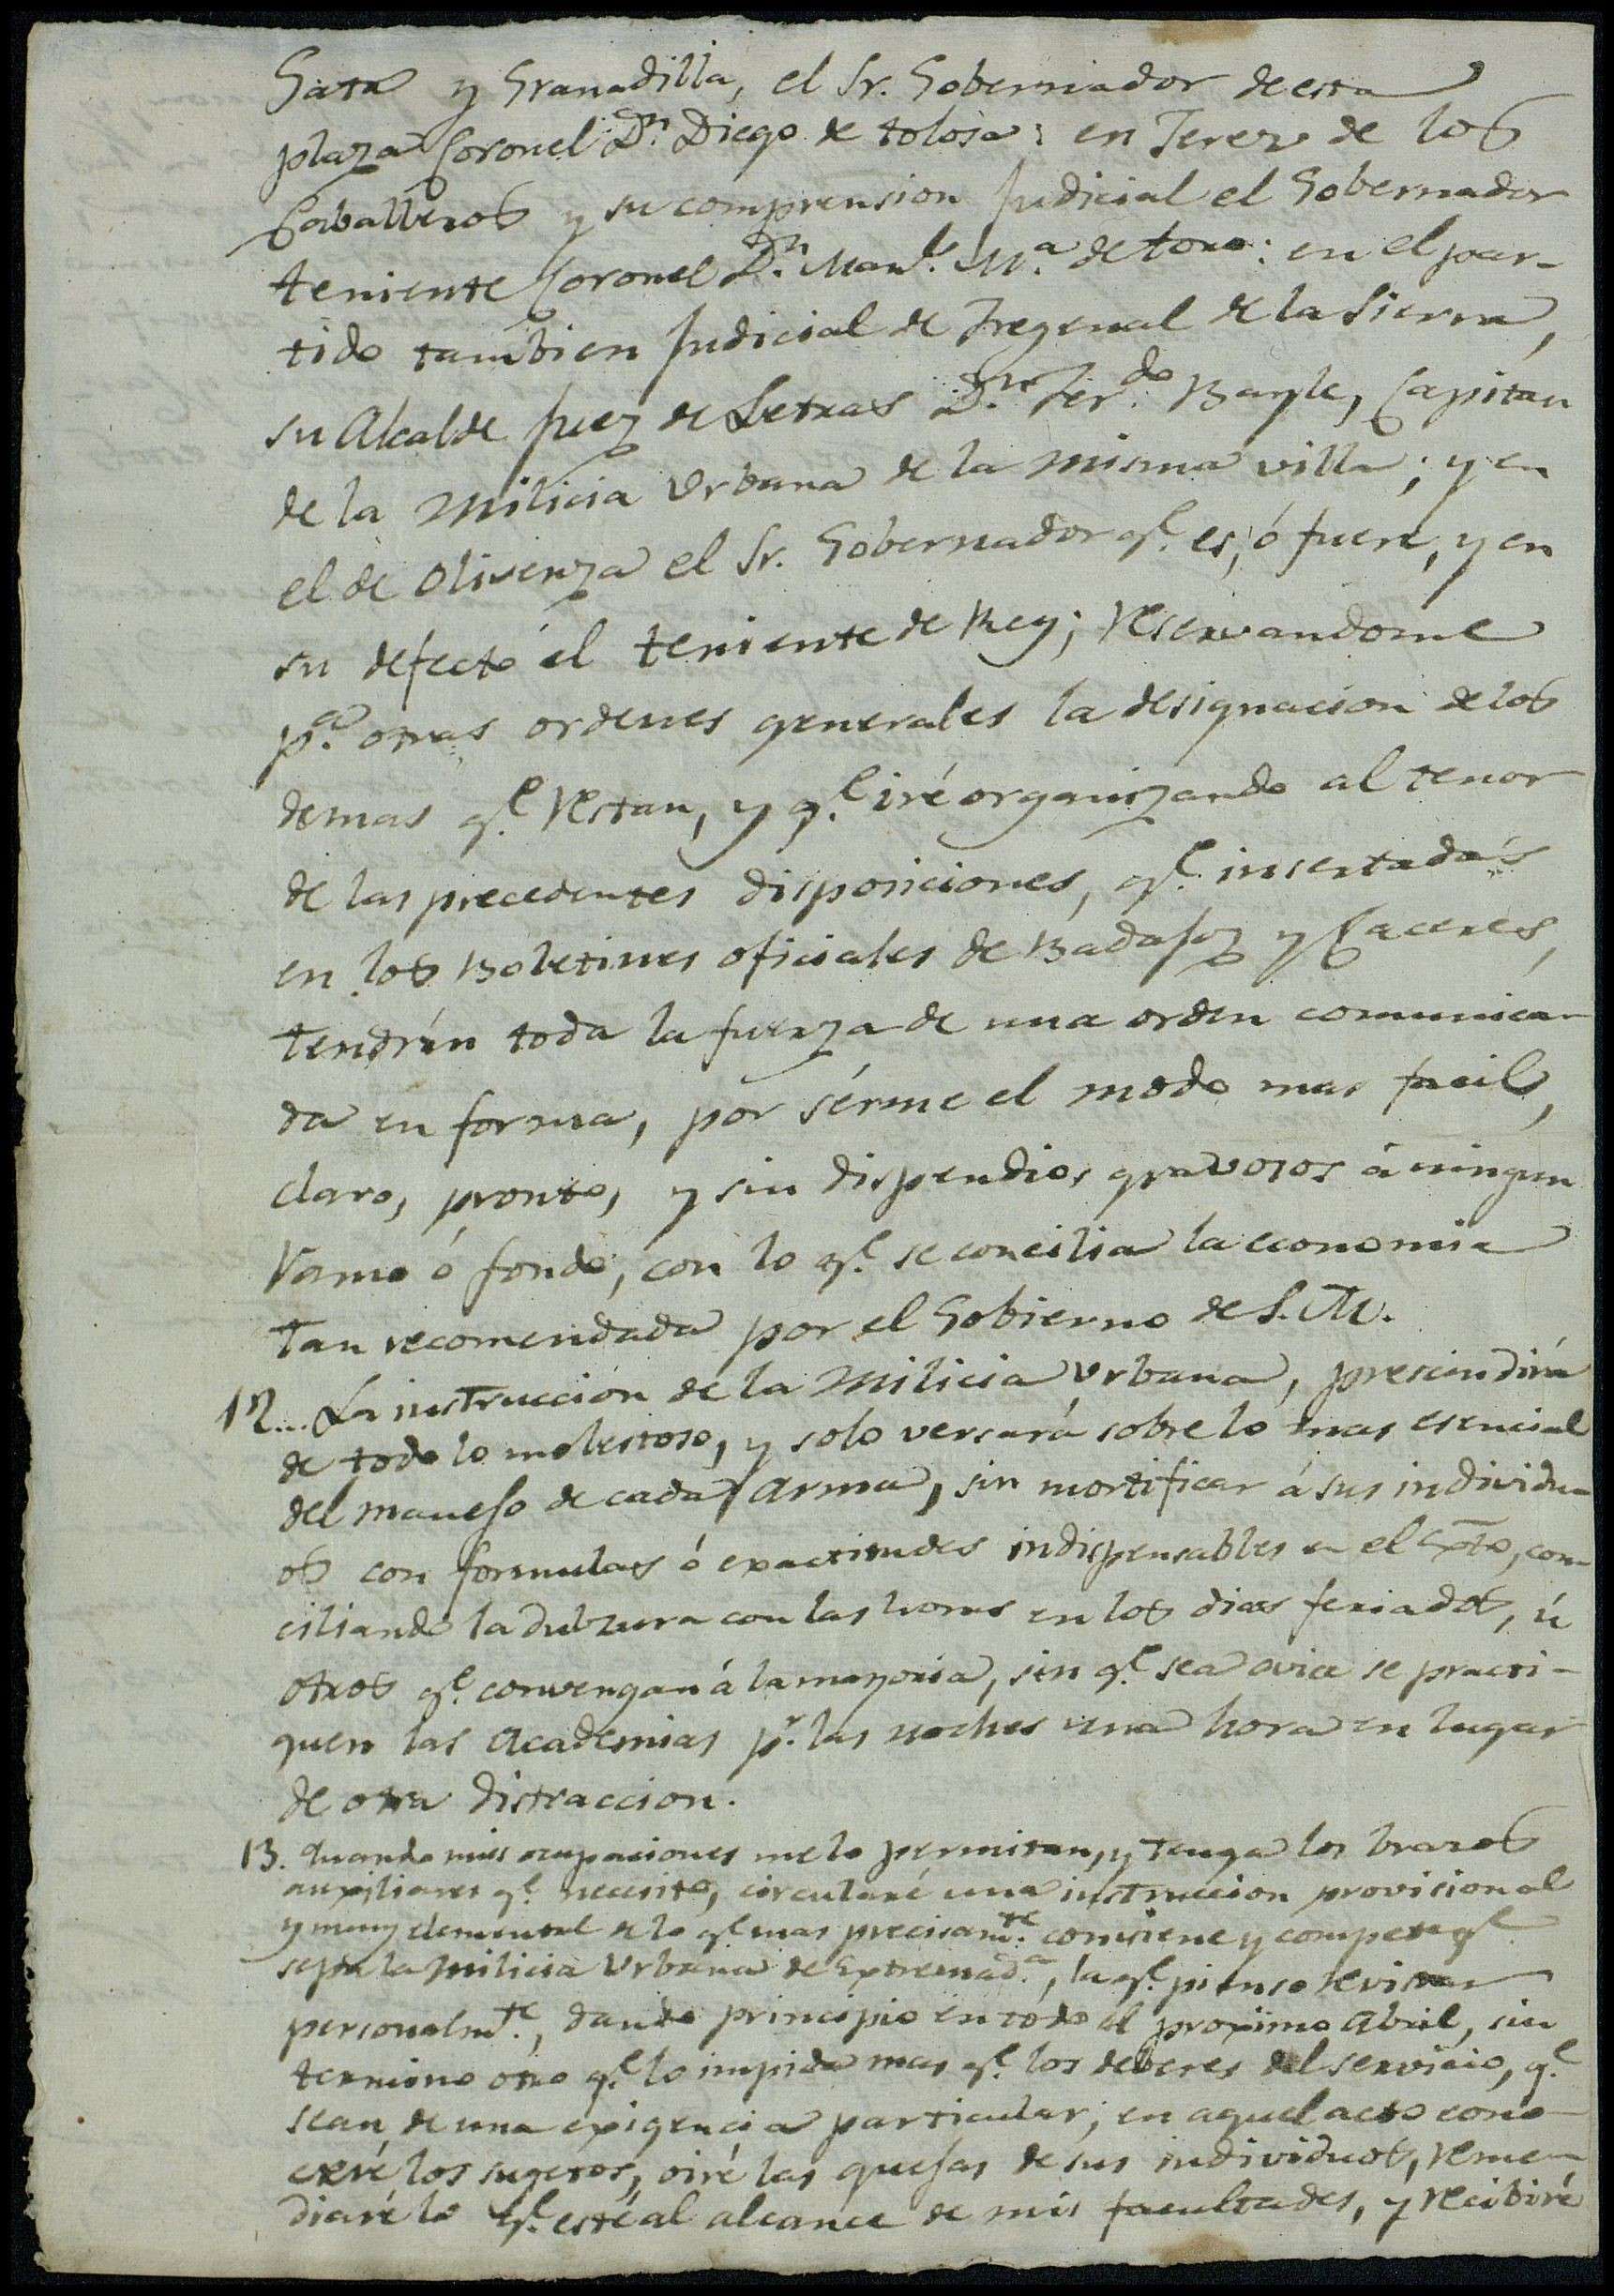 Gata y Granadilla, el Sr. Gobernador de esta
plaza Coronel Dn. Diego de tolosa: en Jerez de los
Caballeros y su comprension Judicial el Gobernador
teniente Coronel Dn. Manl. Ma. de toro: en el par-
tido tambien Judicial de Fregenal de la Sierra,
su Alcalde Juez de Letras Dn. Ferdo. Bayle, Capitan
de la Milicia Urbana de la misma villa; y en
el de Olivenza el Sr. Gobernador ql. es, ó fuere, y en
su defecto el teniente de Rey; reservandome
pa. otras ordenes generales la designacion de los
demas ql. restan, y ql. iré organizando al tenor
de las precedentes disposiciones, ql. insertadas
en los Boletines oficiales de Badajoz y Caceres,
tendrán toda la fuerza de una orden comunica-
da en forma, por sérme el modo mas facil,
claro, pronto, y sin dispendios gravosos á ningun
ramo ó fondo, con lo ql. se concilia la economia
tan recomendada por el Gobierno de S. M.
12... La instruccion de la Milicia Urbana, prescindirá
de todo lo molestoso, y solo versará sobre lo mas esencial
del manejo de cada arma, sin mortificar á sus individu-
os con formulas ó exactitudes indispensables en el Exto, con-
ciliando la dulzura con las horas en los dias feriados, ú
otros ql. convengan á la mayoria, sin ql. sea se practi-
quen las Academias pr. las noches una hora en lugar
de otra distraccion.
13. Quando mis ocupaciones me lo permitan, y tenga los brazos
auxiliares ql. necesito, circularé una instruccion provisional
y muy elemental de lo ql. mas precisamte. conviene y compete ql.
sepa la Milicia Urbana de Extremada., la ql. pienso revistar
personalmte., dando principio en todo el proximo Abril, sin
termino otro ql. lo impida mas ql. los deberes del servicio, ql.
sean de una exigencia particular; en aquel acto cono-
ceré los sugetos, oiré las quejas de sus individuos, reme-
diaré lo ql. esté al alcance de mis facultades, y recibiré